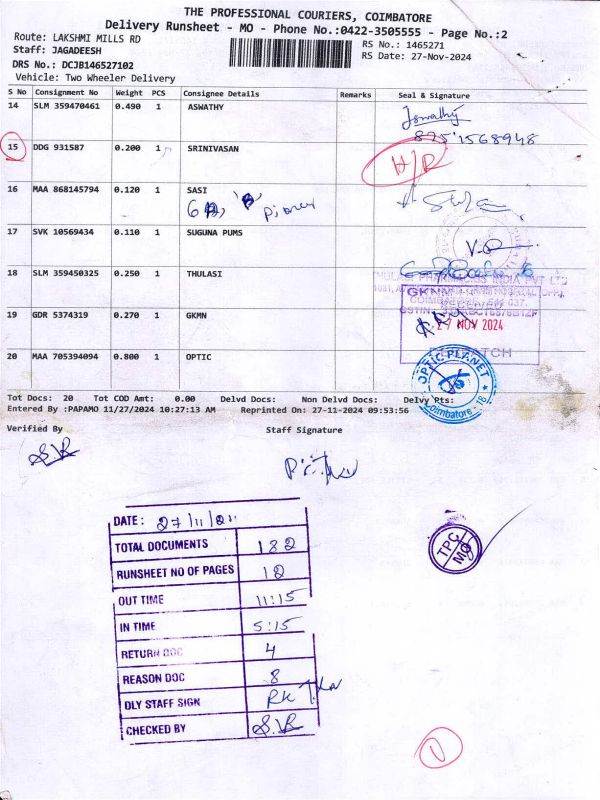 THE PROFESSIONAL COURIERS, COIMBATORE
Delivery Runsheet - MO - Phone No.:0422-3505555 - Page No.:2
Route: LAKSHMI MILLS RD
RS No.: 1465271
Staff: JAGADEESH
RS Date: 27-Nov-2024
DRS No.: DCJB146527102
Vehicle: Two Wheeler Delivery
S No Consignment No Weight PCS Consignee Details Remarks Seal & Signature
14 SLM 359470461 0.490 1 ASWATHY
Aswathy
8751568948
15 DDG 931587 0.200 1 SRINIVASAN
H/R
16 MAA 868145794 0.120 1 SASI
17 SVK 10569434 0.110 1 SUGUNA PUMS
18 SLM 359450325 0.250 1 THULASI
THULASI PHARMACIES INDIA PVT LTD
19 GDR 5374319 0.270 1 GKMN
GKNM
27 NOV 2024
20 MAA 705394094 0.800 1 OPTIC
OPTIC PLANET
Coimbatore - 18
Tot Docs: 20 Tot COD Amt: 0.00 Delvd Docs: Non Delvd Docs: Delvy Pts:
Entered By :PAPAMO 11/27/2024 10:27:13 AM Reprinted On: 27-11-2024 09:53:56
Verified By Staff Signature
S.VR
DATE: 27/11/24
TOTAL DOCUMENTS 182
RUNSHEET NO OF PAGES 12
OUT TIME 11:15
IN TIME 5:15
RETURN DOC 4
REASON DOC 8
DLY STAFF SIGN RK
CHECKED BY S.VR
TPC
MO